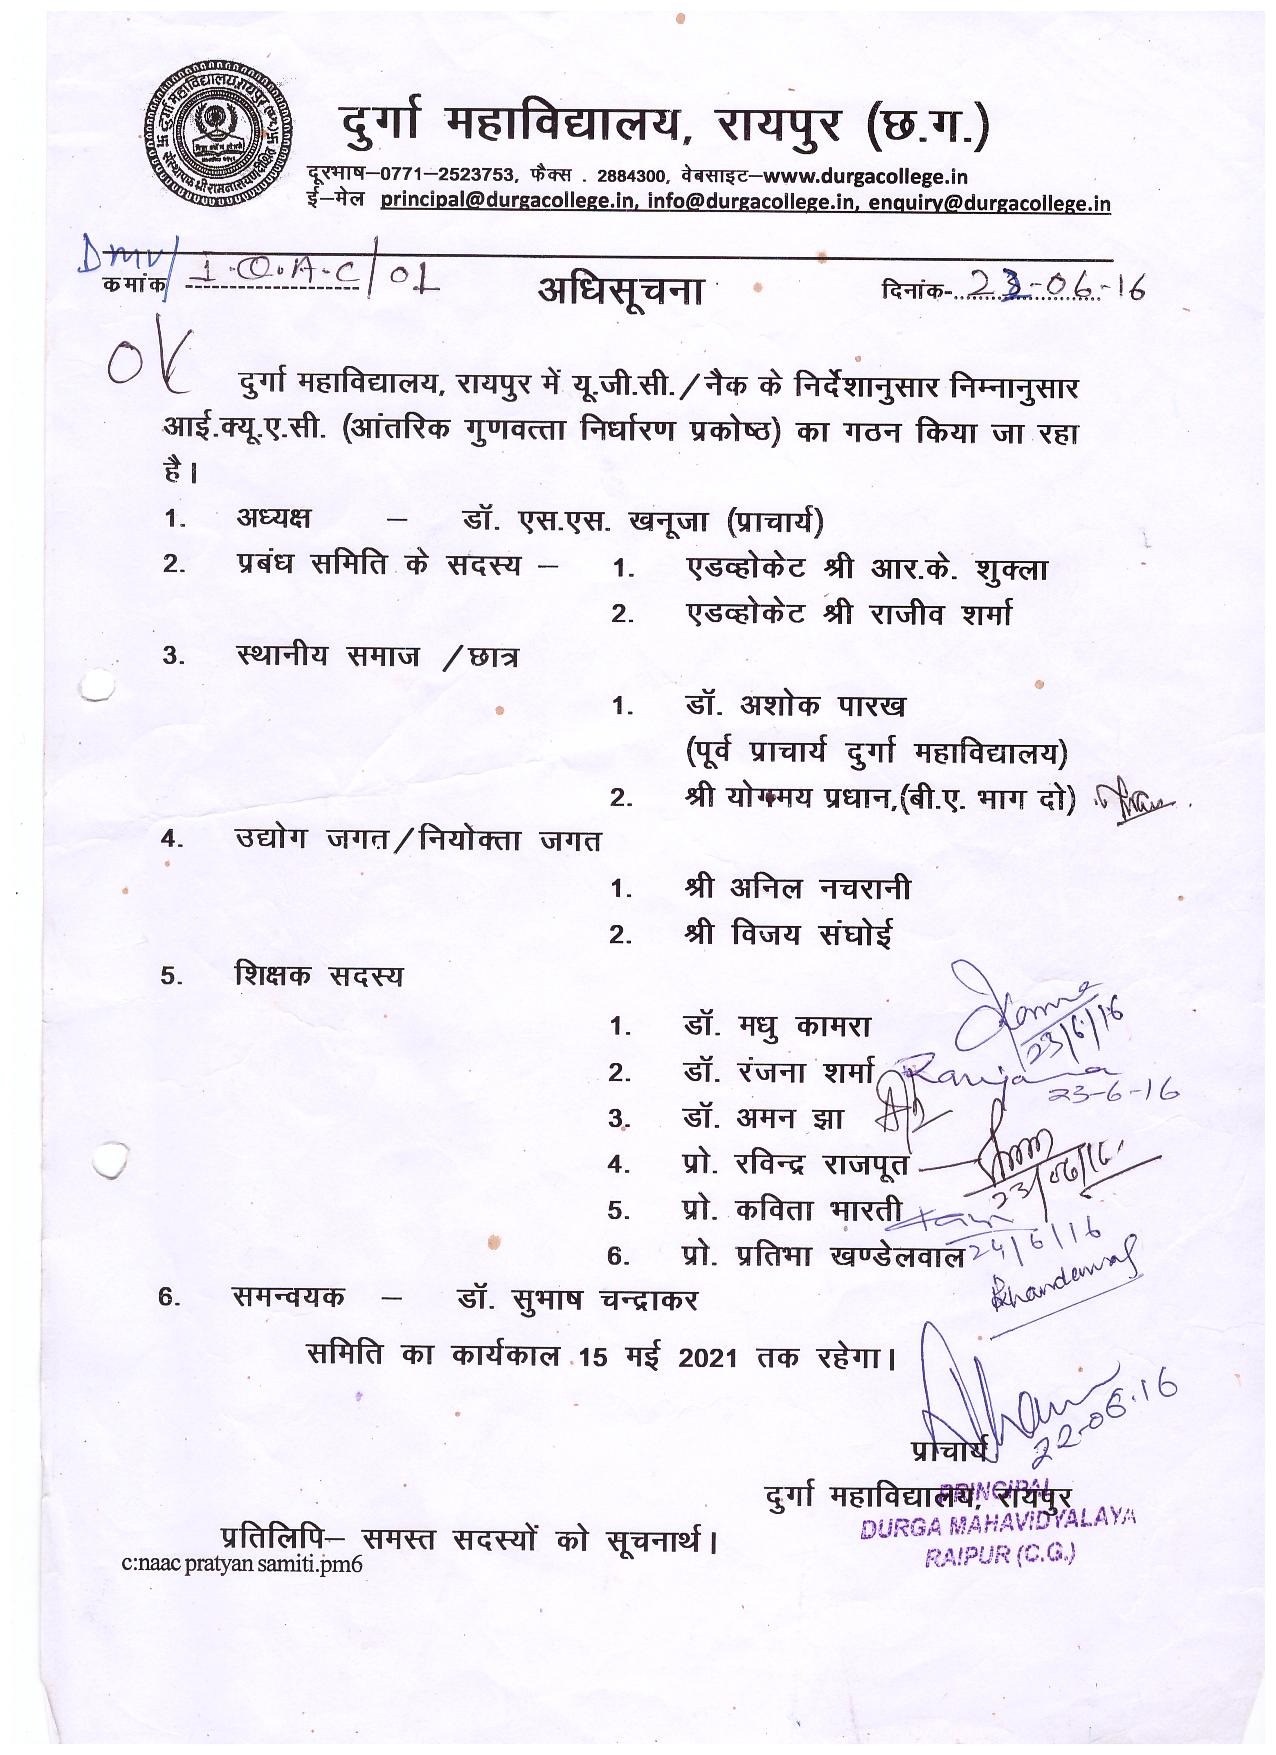 दुर्गा महाविद्यालय, रायपुर (छ.ग.)
दूरभाष–0771–2523753, फैक्स . 2884300, वेबसाइट–www.durgacollege.in
ई–मेल principal@durgacollege.in, info@durgacollege.in, enquiry@durgacollege.in
DMV/
कमांक I.Q.A.C/01 अधिसूचना दिनांक-23-06-16
OK
दुर्गा महाविद्यालय, रायपुर में यू.जी.सी./नैक के निर्देशानुसार निम्नानुसार
आई.क्यू.ए.सी. (आंतरिक गुणवत्ता निर्धारण प्रकोष्ठ) का गठन किया जा रहा
है।
1. अध्यक्ष – डॉ. एस.एस. खनूजा (प्राचार्य)
2. प्रबंध समिति के सदस्य – 1. एडव्होकेट श्री आर.के. शुक्ला
2. एडव्होकेट श्री राजीव शर्मा
3. स्थानीय समाज /छात्र
1. डॉ. अशोक पारख
(पूर्व प्राचार्य दुर्गा महाविद्यालय)
2. श्री योगमय प्रधान,(बी.ए. भाग दो)
4. उद्योग जगत/नियोक्ता जगत
1. श्री अनिल नचरानी
2. श्री विजय संघोई
5. शिक्षक सदस्य
1. डॉ. मधु कामरा
23/6/16
2. डॉ. रंजना शर्मा Ranjana
23-6-16
3. डॉ. अमन झा
4. प्रो. रविन्द्र राजपूत
23/06/16
5. प्रो. कविता भारती
24/6/16
6. प्रो. प्रतिभा खण्डेलवाल
Khandelwal
6. समन्वयक – डॉ. सुभाष चन्द्राकर
समिति का कार्यकाल 15 मई 2021 तक रहेगा।
22-06-16
प्राचार्य
दुर्गा महाविद्यालय, रायपुर
PRINCIPAL
DURGA MAHAVIDYALAYA
RAIPUR (C.G.)
प्रतिलिपि– समस्त सदस्यों को सूचनार्थ।
c:naac pratyan samiti.pm6